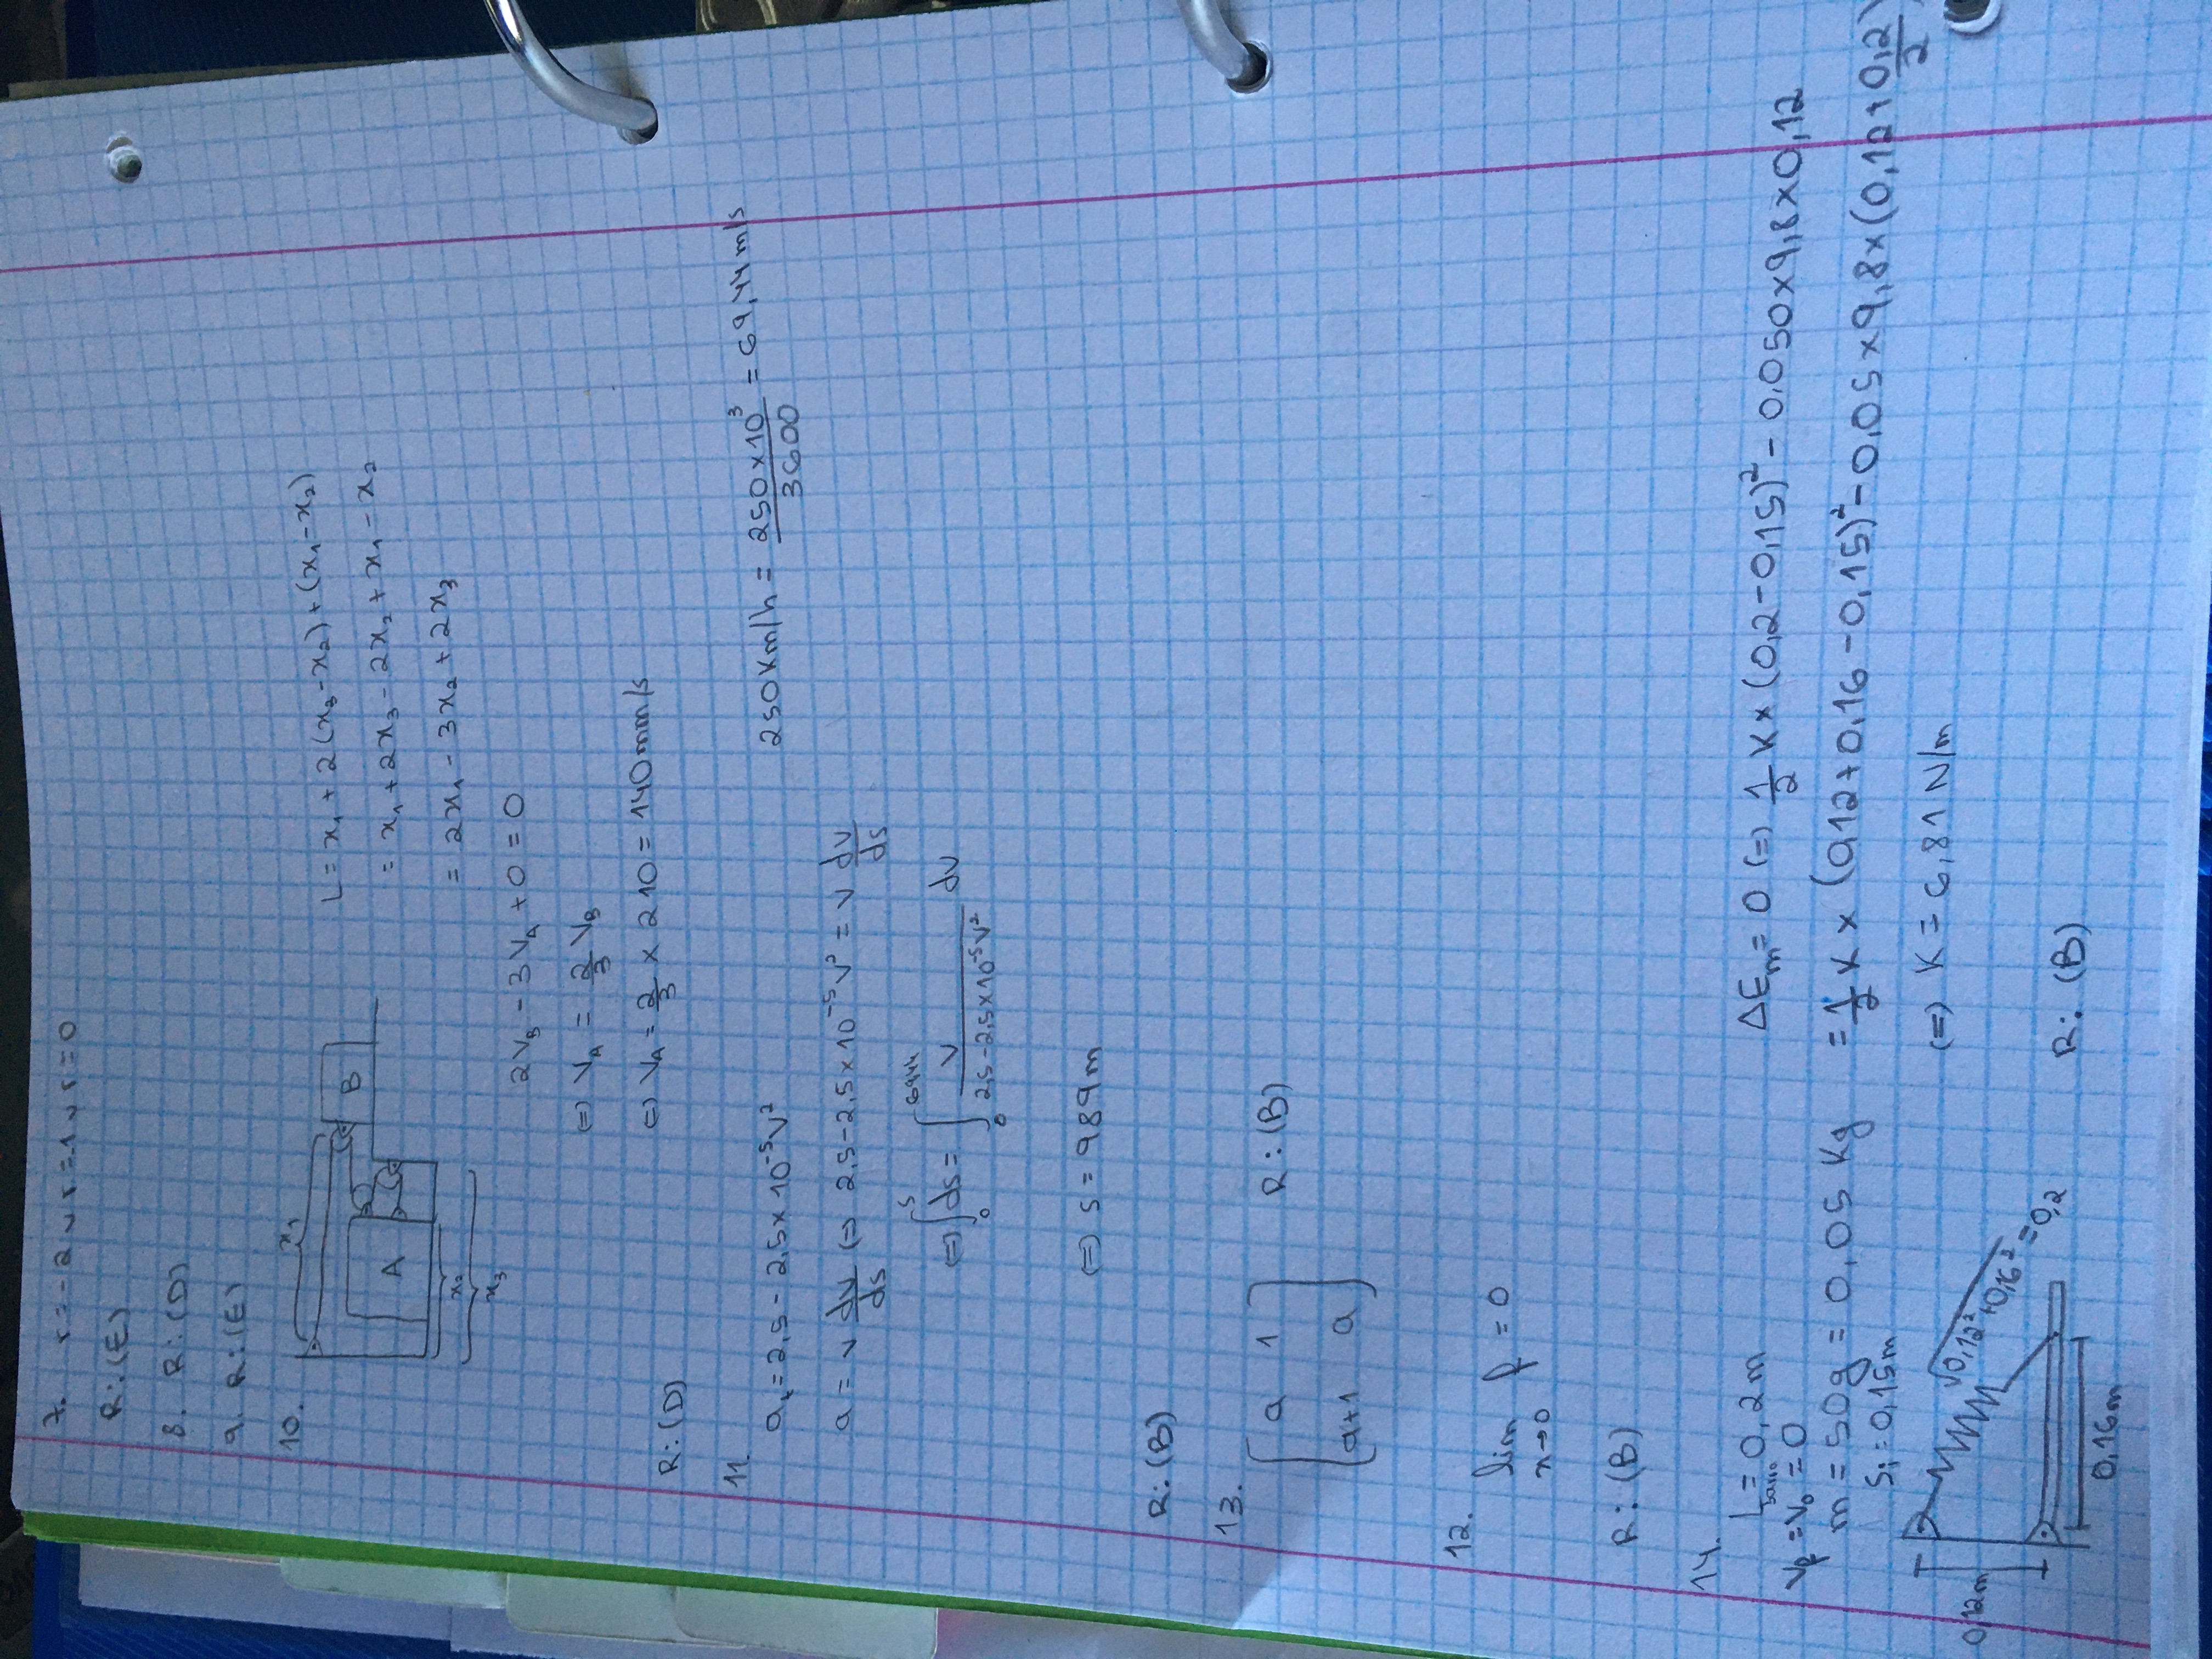 7. r = -2 ∨ r = -1 ∨ r = 0
R: (E)
8. R: (D)
9. R: (E)
10.
x₁
A
B
x₂
x₃
L = x₁ + 2(x₃ - x₂) + (x₁ - x₂)
= x₁ + 2x₃ - 2x₂ + x₁ - x₂
= 2x₁ - 3x₂ + 2x₃
2V_B - 3V_A + 0 = 0
(=) V_A = 2/3 V_B
(=) V_A = 2/3 × 210 = 140 mm/s
R: (D)
11.
a_t = 2,5 - 2,5 × 10⁻⁵ v²
250 Km/h = 250 × 10³ / 3600 = 69,44 m/s
a = v dv/ds (=) 2,5 - 2,5 × 10⁻⁵ v² = v dv/ds
(=) ∫₀^s ds = ∫₀^6944 v / (2,5 - 2,5 × 10⁻⁵ v²) dv
(=) s = 989 m
R: (B)
13.
[ a 1
a+1 a ]
R: (B)
12.
lim f = 0
x→0
R: (B)
14.
L_barra = 0,2 m
V_f = V_0 = 0
m = 50g = 0,05 Kg
S_i = 0,15 m
ΔE_m = 0 (=) 1/2 K × (0,2 - 0,15)² - 0,050 × 9,8 × 0,12
= 1/2 K × (0,12 + 0,16 - 0,15)² - 0,05 × 9,8 × (0,12 + 0,2/2)
(=) K = 6,81 N/m
0,12m
√0,12² + 0,16² = 0,2
0,16m
R: (B)